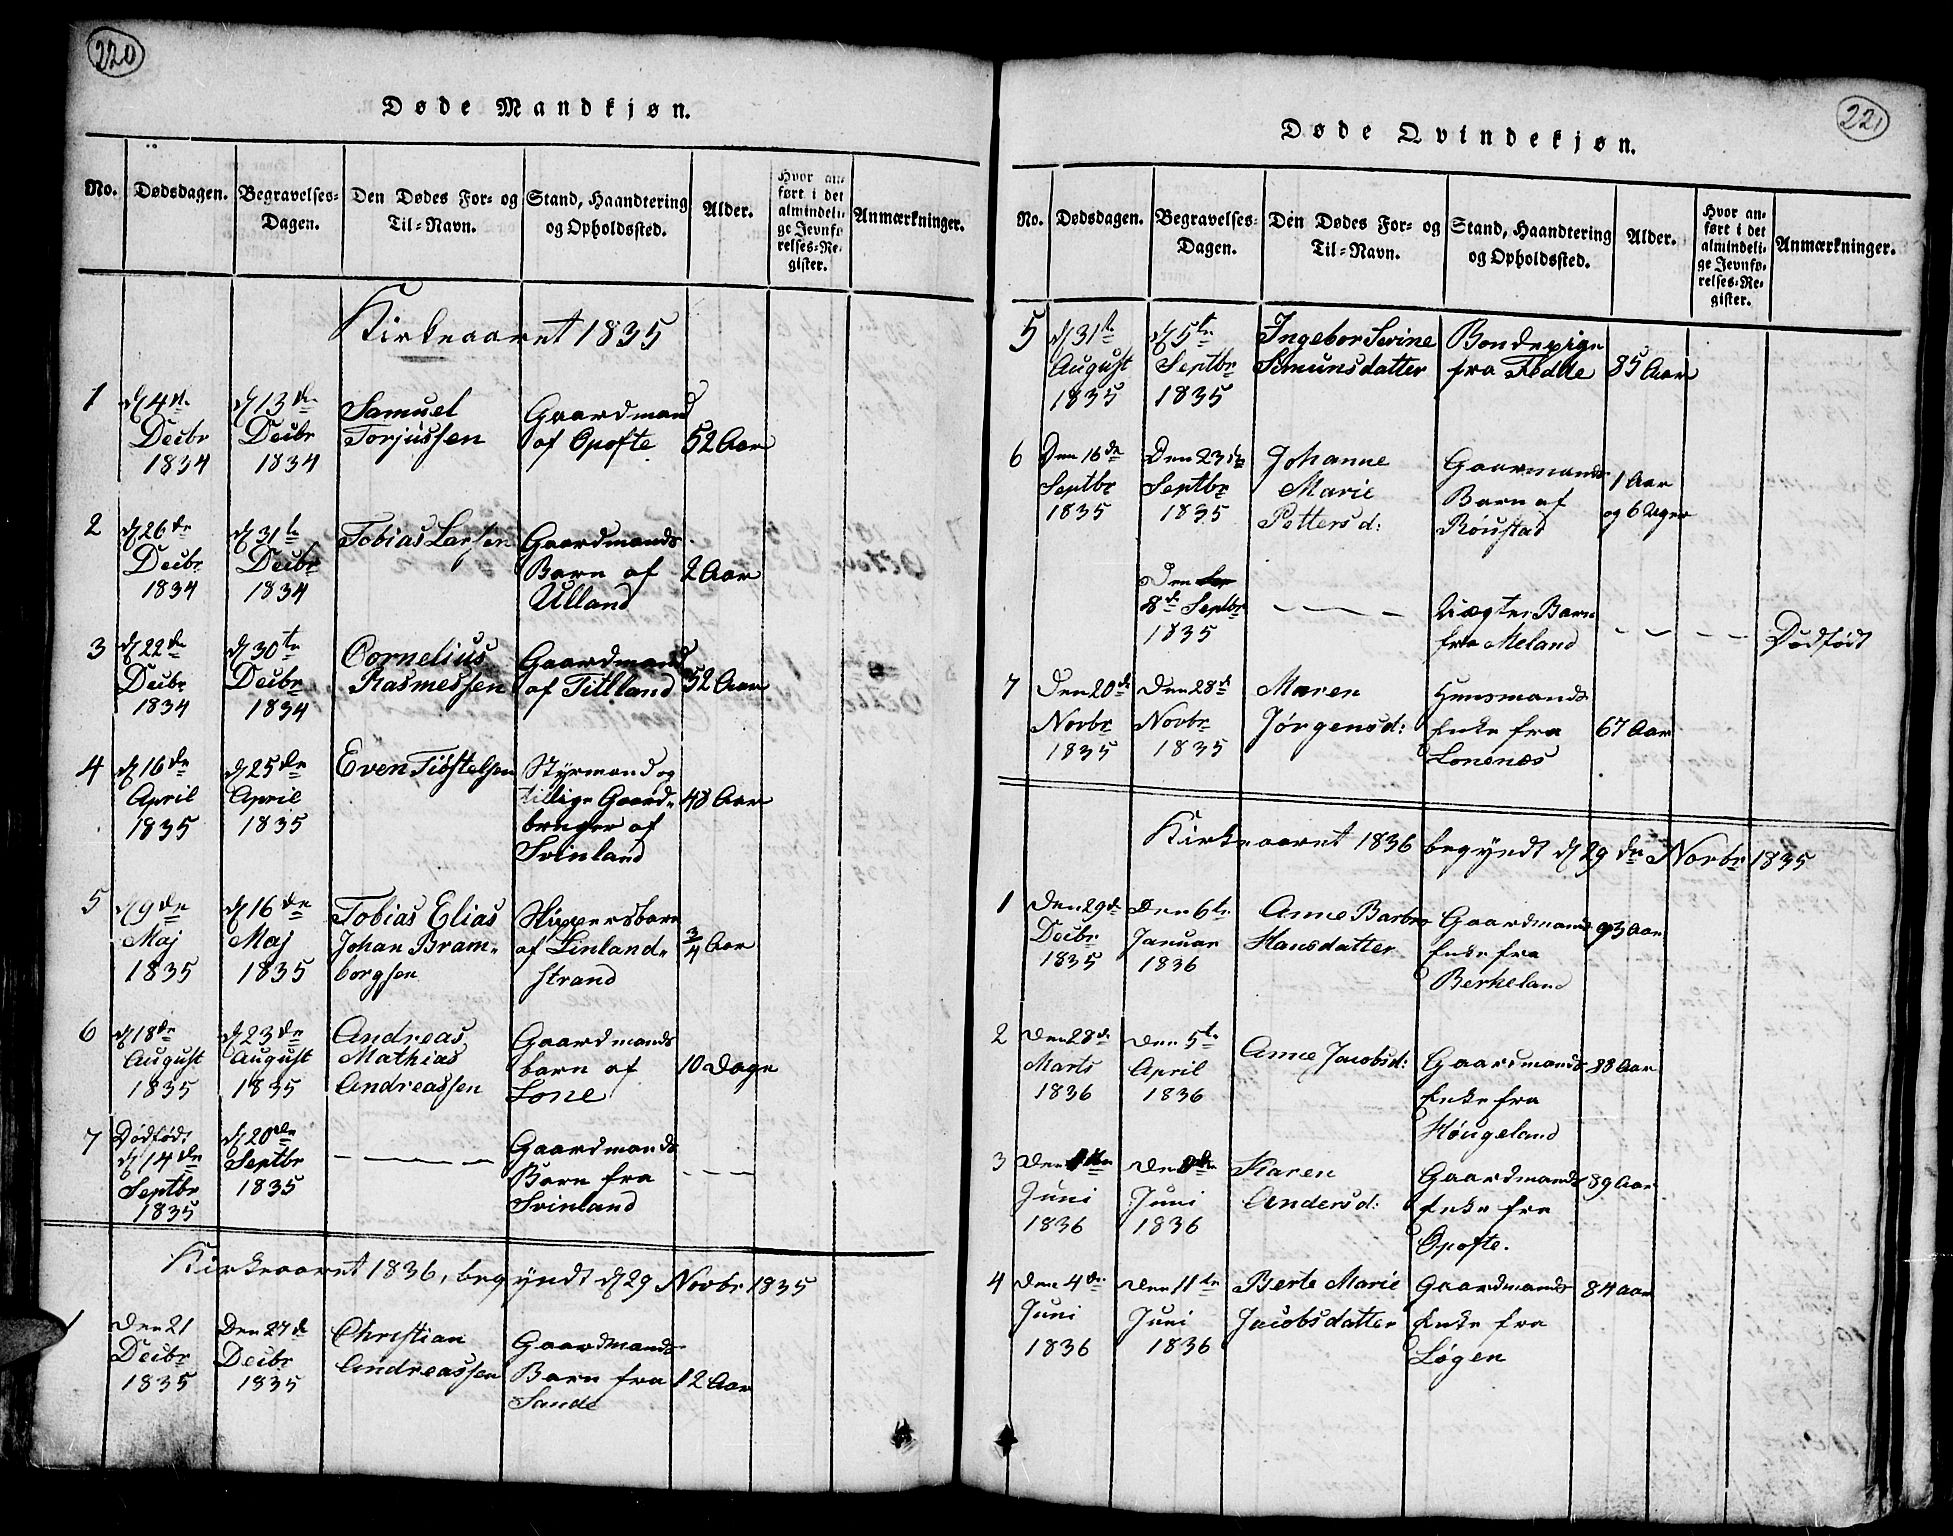 220
Døde Mandkjøn.
No. Dødsdagen. Begravelses-Dagen. Den Dødes For- og Til-Navn. Stand, Haandtering og Opholdssted. Alder. Hvor anført i det almindelige Jevnførelses-Register. Anmærkninger.
Kirkeaaret 1835
1 d 4de Decbr 1834 d 13de Decbr 1834 Samuel Torjussen Gaardmand af Opofte 52 Aar
2 d 26de Decbr 1834 d 31te Decbr 1834 Tobias Larsen Gaardmands Barn af Ulland 2 Aar
3 d 22de Decbr 1834 d 30te Decbr 1834 Cornelius Rasmessen Gaardmand af Titlland 52 Aar
4 d 16de April 1835 d 25de April 1835 Even Tibstelsen Styrmand og tillige Gaardbruger af Svinland 48 Aar
5 d 9de Maj 1835 d 16de Maj 1835 Tobias Elias Johan Bramborgsen Skippersbarn af Linlandstrand 3/4 Aar
6 d 18de August 1835 d 23de August 1835 Andreas Mathias Andreassen Gaardmands barn af Lone 10 Dage
7 Dødfødt d 14de Septbr 1835 d 20de Septbr 1835 Gaardmands Barn fra Svinland
Kirkeaaret 1836, begyndt d 29 Novbr 1835
1 Den 21 Decbr 1835 Den 27d Decbr 1835 Christian Andreassen Gaardmands Barn fra Sande 12 Aar
221
Døde Qvindekjøn.
No. Dødsdagen. Begravelses-Dagen. Den Dødes For- og Til-Navn. Stand, Haandtering og Opholdssted. Alder. Hvor anført i det almindelige Jevnførelses-Register. Anmærkninger.
5 d 31te August 1835 d 5te Septbr 1835 Ingebor Serine Simunsdatter Bondepige fra Fedde 85 Aar
6 Den 16de Septbr 1835 Den 23de Septbr 1835 Johanne Marie Pettersd: Gaarmands Barn af Røustad 1 Aar og 6 Uger
Den 8de Septbr 1835 Uægte Barn fra Meland Dødfødt
7 Den 20de Novbr 1835 Den 28d Novbr 1835 Maren Jørgensd: Huusmands Enke fra Lonenæs 67 Aar
Kirkeaaret 1836 begyndt d 29de Novbr 1835
1 Den 29d Decbr 1835 Den 6te Januar 1836 Anne Barbro Hansdatter Gaardmands Enke fra Berkeland 93 Aar
2 Den 28d Marts 1836 Den 5te April 1836 Anne Jacobsd: Gaardmands Enke fra Høugeland 88 Aar
3 Den Juni 1836 Den Juni 1836 Karen Andersd: Gaardmands Enke fra Opofte. 89 Aar
4 Den 4de Juni 1836 Den 11te Juni 1836 Berte Marie Jacobsdatter Gaardmands Enke fra Løgen 84 Aar